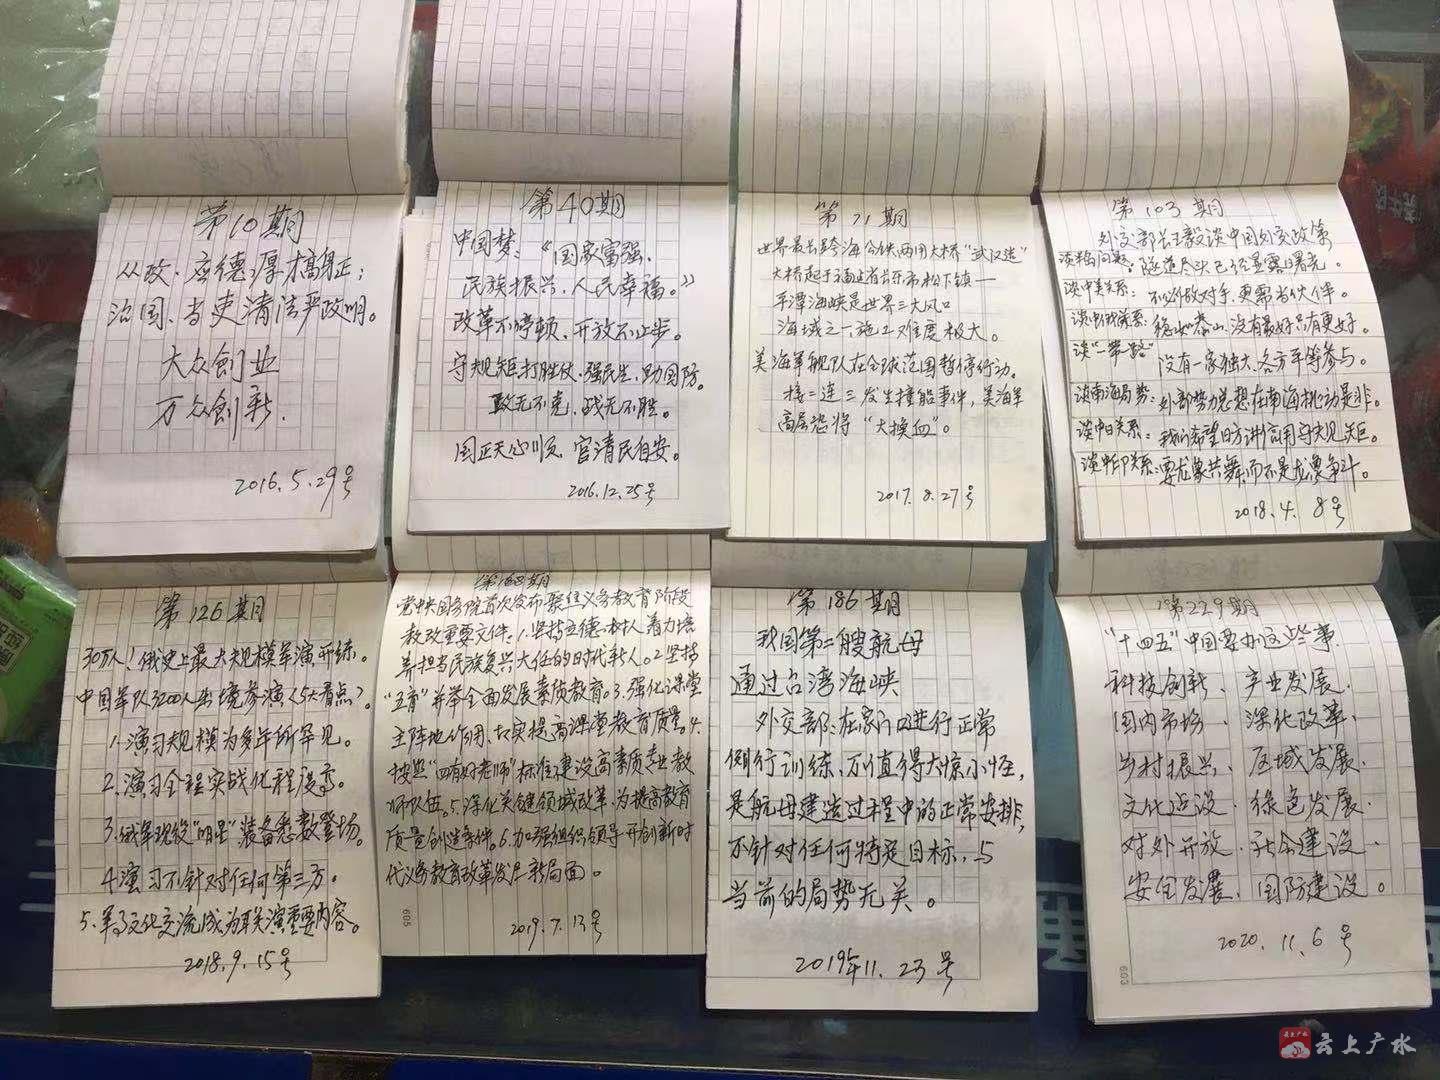 第10期
从政、应德厚才高身正；
治国、当吏清法严政明。
大众创业
万众创新.
2016.5.29号
第40期
中国梦：“国家富强、
民族振兴、人民幸福。”
改革不停顿、开放不止步。
守规矩打胜仗、强民生、助国防。
政无不克，战无不胜。
国正天心顺，官清民自安。
2016.12.25号
第71期
世界最长跨海公铁两用大桥“武汉造”
大桥起于福建省长乐市松下镇一
平潭海峡是世界三大风口
海域之一施工难度极大。
美海军舰队在全球范围暂停行动。
接二连三发生撞船事件，美海军
高层恐将“大换血”。
2017.8.27号
第103期
外交部长王毅谈中国外交政策
谈半岛问题：隧道尽头已经显露曙光。
谈中美关系：不必做对手，更需当伙伴。
谈中俄关系：稳如泰山、没有最好只有更好。
谈“一带一路”没有一家独大、各方平等参与。
谈南海局势：外部势力总想在南海挑动是非。
谈中日关系：我们希望日方讲信用守规矩。
谈中印关系：要龙象共舞，而不是龙象争斗。
2018.4.8号
第126期
30万人！俄史上最大规模军演开练。
中国军队3200人出境参演〈5大看点〉？
1.演习规模为多年所罕见。
2.演习全程实战化程度高。
3.俄军现役“明星”装备悉数登场。
4.演习不针对任何第三方。
5.军事文化交流成为联演重要内容。
2018.9.15号
第168期
党中央国务院首次发布聚焦义务教育阶段
教改重要文件：1.坚持立德树人着力培
养担当民族复兴大任的时代新人。2坚持
“五育”并举全面发展素质教育。3.强化课堂
主阵地作用、切实提高课堂教育质量。4.
按照“四有好老师”标准建设高素质专业教
师队伍。5.深化关键领域改革、为提高教育
质量创造条件。6.加强组织领导开创新时
代义务教育改革发展新局面。
605
2019.7.13号
第186期
我国第二艘航母
通过台湾海峡
外交部：在家门口进行正常
例行训练、不值得大惊小怪，
是航母建造过程中的正常安排，
不针对任何特定目标、与
当前的局势无关。
2019年11.23号
第229期
“十四五”中国要办这些事
科技创新、产业发展、
国内市场、深化改革、
乡村振兴、区域发展、
文化建设、绿色发展、
对外开放、社会建设、
安全发展、国防建设。
2020.11.6号
603
云上广水